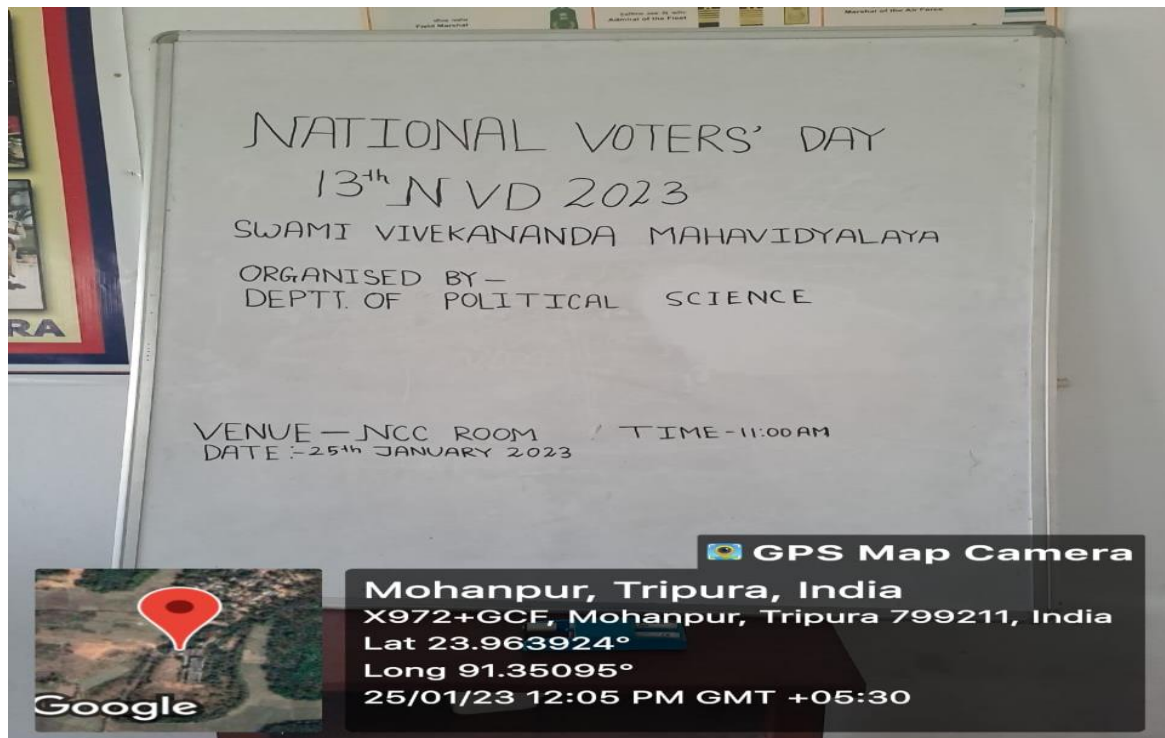 Field Marshal
Admiral of the Fleet
Marshal of the Air Force
NATIONAL VOTERS' DAY
13th NVD 2023
SWAMI VIVEKANANDA MAHAVIDYALAYA
ORGANISED BY –
DEPTT. OF POLITICAL SCIENCE
RA
VENUE – NCC ROOM TIME - 11:00 AM
DATE :- 25th JANUARY 2023
GPS Map Camera
Mohanpur, Tripura, India
X972+GCF, Mohanpur, Tripura 799211, India
Lat 23.963924°
Long 91.35095°
25/01/23 12:05 PM GMT +05:30
Google